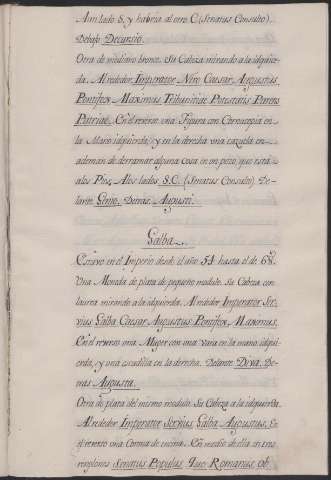 A un lado S, y habria al otro C. (Senatus Consulto).
Debajo Decursio.
Otra de mediano bronce. Su Cabeza mirando a la idquier-
da. Alrededor Imperator Nero Caesar, Augustus
Pontifex Maximus Tribunitiae Potestatis Parens
Patriae. En el reverso una figura con Cornucopia en
la Mano idquierda, y en la derecha una cazuela en
ademan de derramar alguna cosa en un pozo, que está
a los Pies. A los lados S.C. (Senatus Consulto). De-
lante Genio. Detras Augusti.
Galba.
Estuvo en el Imperio desde el año 54 hasta el de 68.
Una Moneda de plata de pequeño modulo. Su Cabeza con
laurea mirando a la idquierda. Alrededor Imperator Ser-
vius Galba Caesar Augustus Pontifex, Maximus.
En el reverso una Muger con una vara en la mano idqui-
erda, y una escudilla en la derecha. Delante Diva. De-
tras Augusta.
Otra de plata del mismo modulo. Su Cabeza a la idquierda.
Alrededor Imperator Servius Galba Augustus. En
el reverso una Corona de encina. En medio de ella en tres
renglones Senatus Populus, Que Romanus, ob